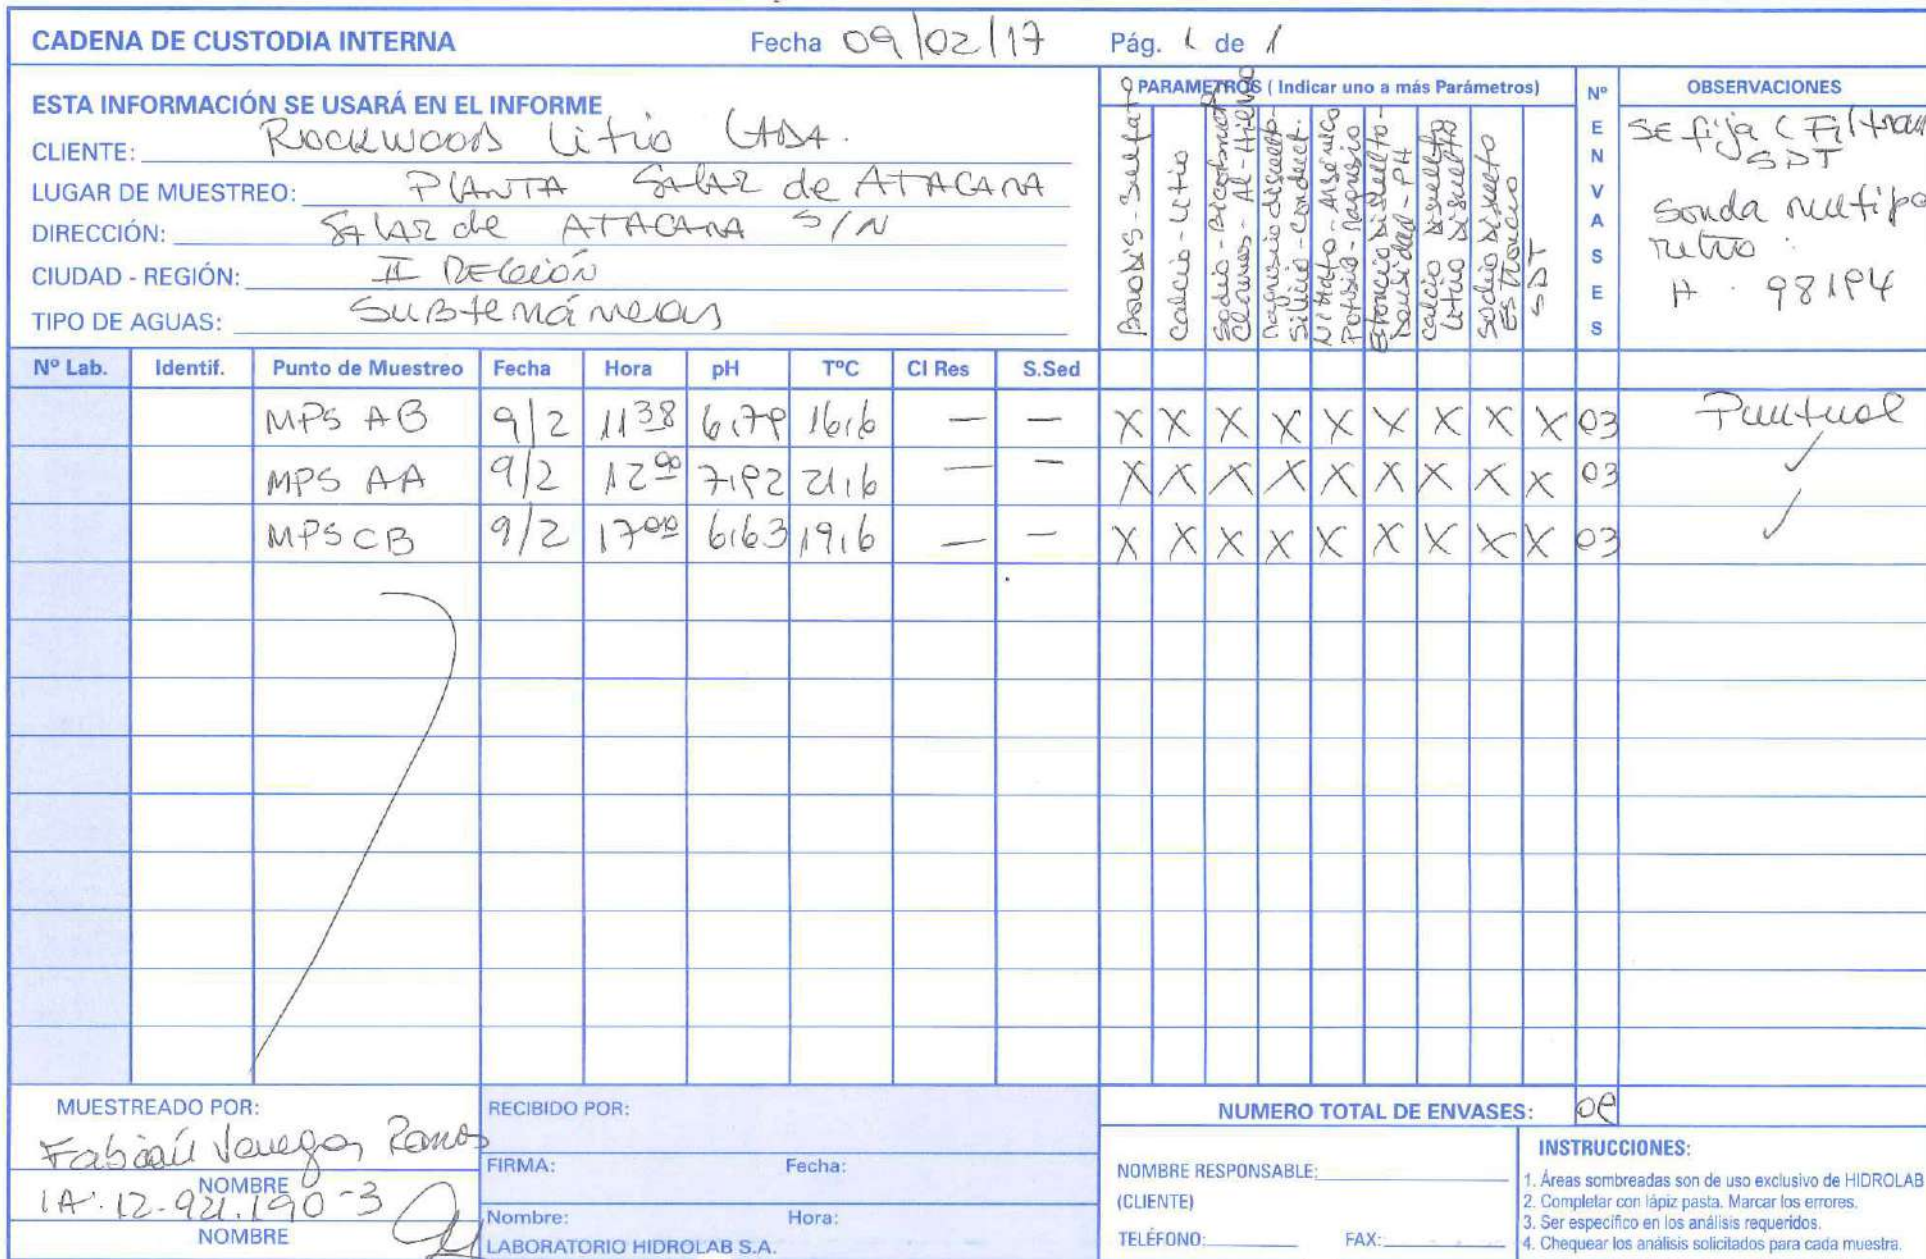 CADENA DE CUSTODIA INTERNA Fecha 09/02/17 Pág. 1 de 1
ESTA INFORMACIÓN SE USARÁ EN EL INFORME
CLIENTE: Rockwood Litio Ltda.
LUGAR DE MUESTREO: PLANTA Salar de ATACAMA
DIRECCIÓN: Salar de ATACAMA S/N
CIUDAD - REGIÓN: II Región
TIPO DE AGUAS: Subterráneas
PARAMETROS ( Indicar uno a más Parámetros)
Boro Dis - Sulfato
Calcio - Litio
Sodio - Bicarbonato
Cloruros - Al - Hierro
Magnesio disuelto -
Silicio - Conduct.
Nitrato - Arsénico
Potasio - Magnesio
Estroncio Disuelto -
Densidad - PH
Calcio Disuelto
Litio Disuelto
Sodio Disuelto
Estroncio
SDT
Nº ENVASES
OBSERVACIONES
SE fija (Filtran
SDT
sonda multipa
metro :
H . 98194
Nº Lab. Identif. Punto de Muestreo Fecha Hora pH TºC Cl Res S.Sed
MPS AB 9/2 11 38 6,79 16,6 — — X X X X X X X X X 03 Puntual
MPS AA 9/2 12 00 7,92 21,6 — — X X X X X X X X X 03 ✓
MPS CB 9/2 17 00 6,63 19,6 — — X X X X X X X X X 03 ✓
MUESTREADO POR:
Fabián Venegas Ramos
NOMBRE
IA: 12.921.190-3
NOMBRE
RECIBIDO POR:
FIRMA: Fecha:
Nombre: Hora:
LABORATORIO HIDROLAB S.A.
NUMERO TOTAL DE ENVASES: 09
NOMBRE RESPONSABLE:
(CLIENTE)
TELÉFONO: FAX:
INSTRUCCIONES:
1. Áreas sombreadas son de uso exclusivo de HIDROLAB
2. Completar con lápiz pasta. Marcar los errores.
3. Ser específico en los análisis requeridos.
4. Chequear los análisis solicitados para cada muestra.